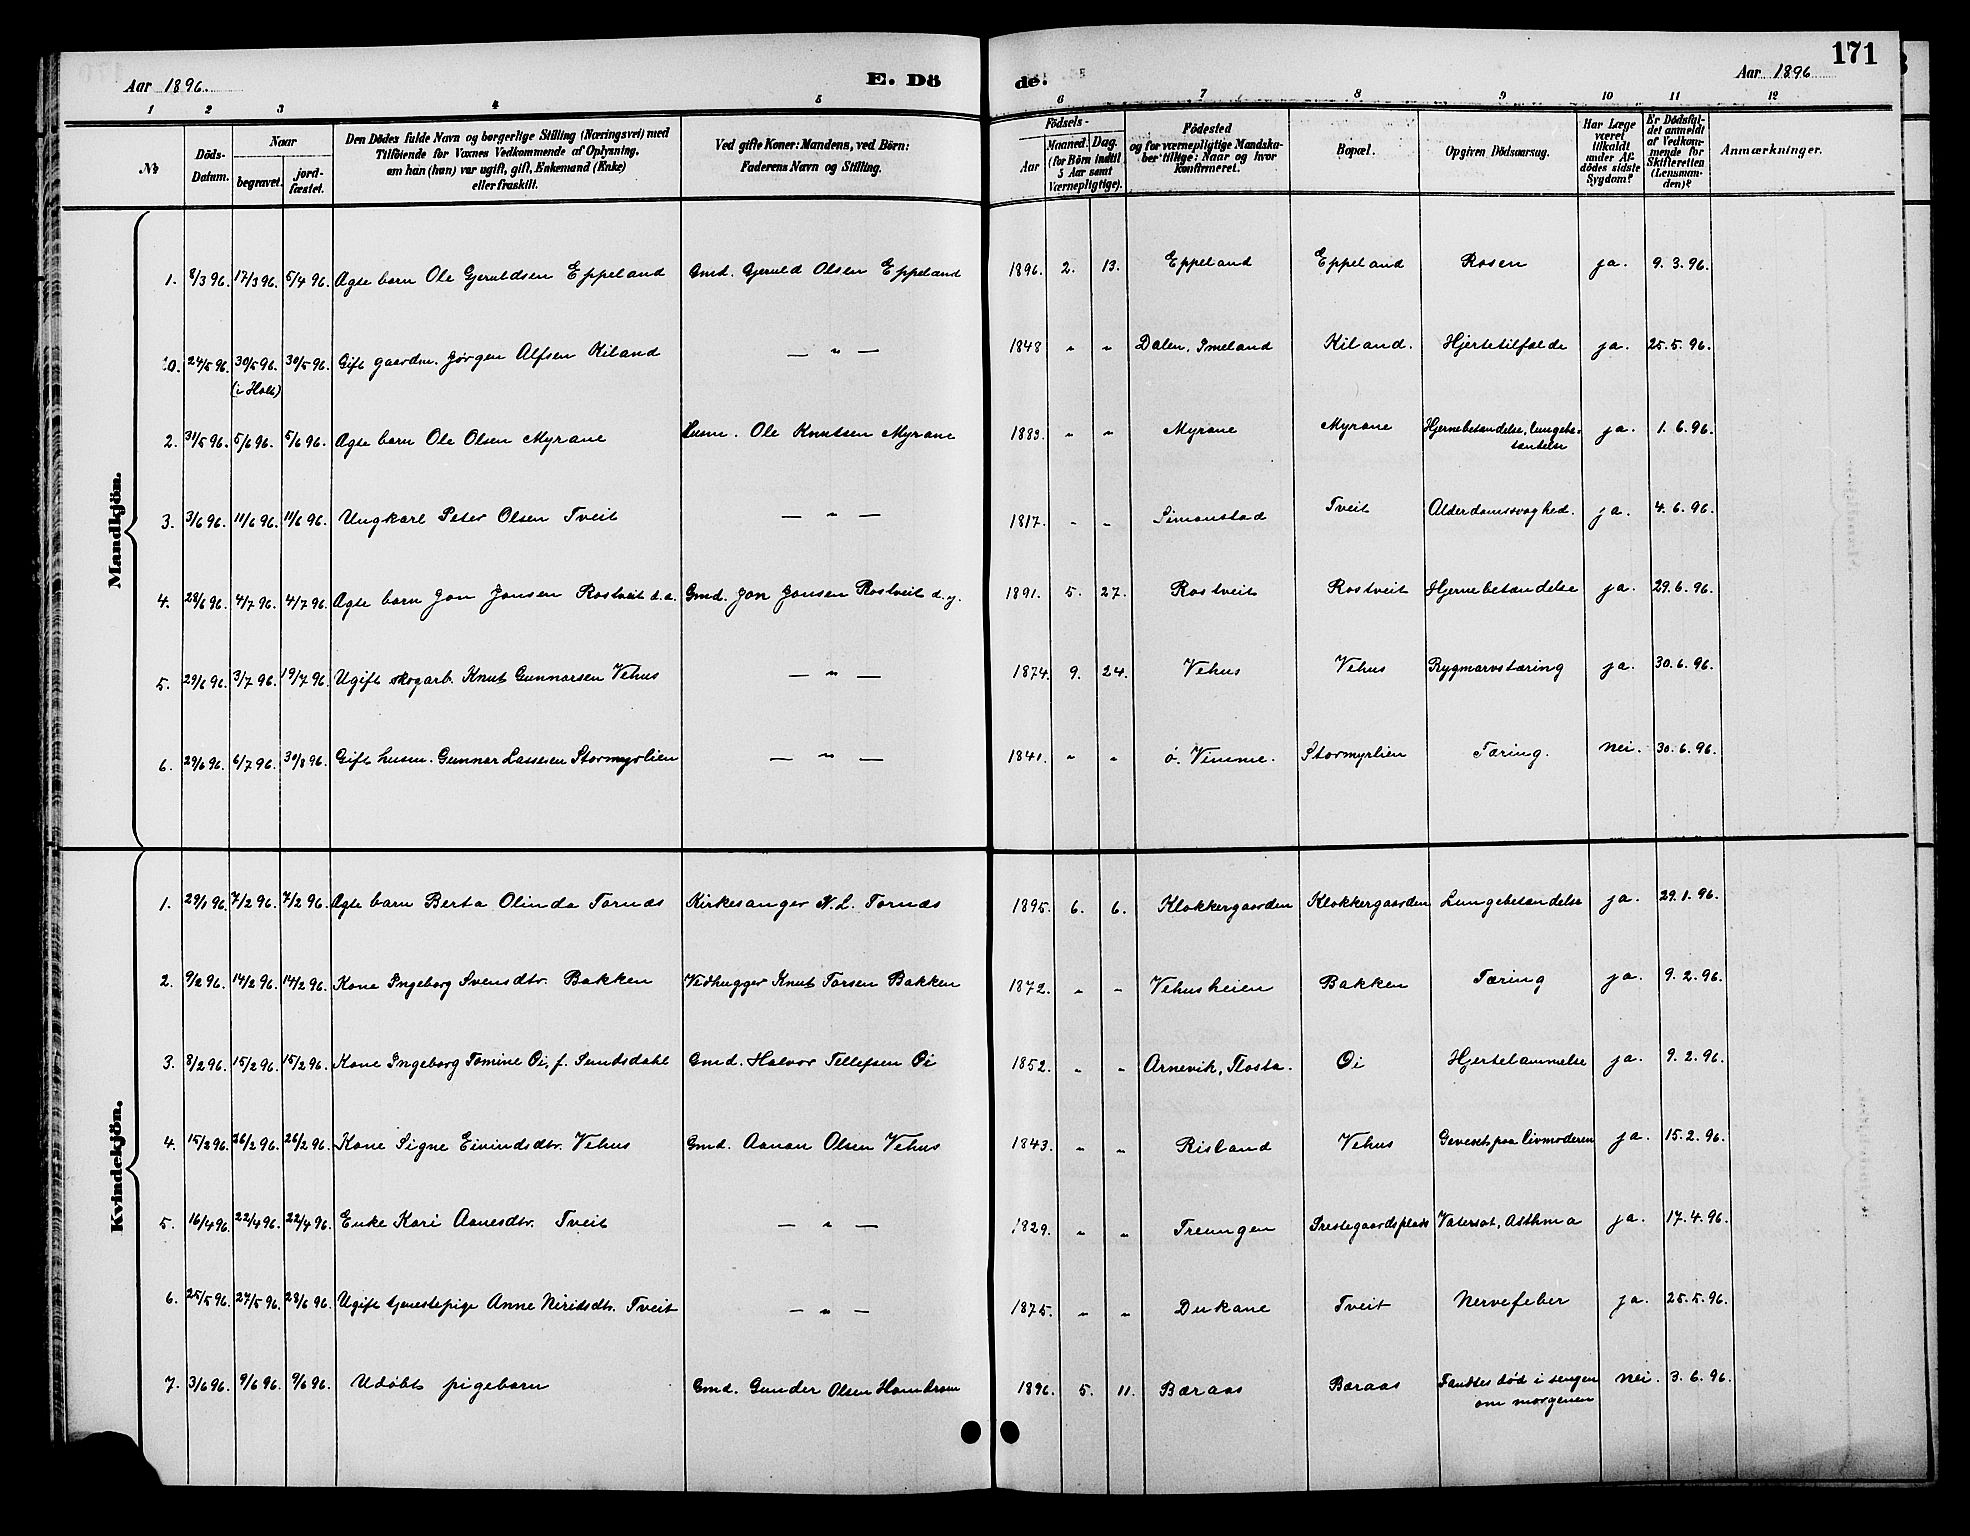 171
Aar 1896. E. Dö de. Aar 1896
1 2 3 4 5 6 7 8 9 10 11 12
No
Döds-Datum.
Naar
begravet.
jord-fæstet.
Den Dödes fulde Navn og borgerlige Stilling (Næringsvei) med
Tilföiende for Voxnes Vedkommende af Oplysning,
om han (hun) var ugift, gift, Enkemand (Enke)
eller fraskilt.
Ved gifte Koner: Mandens, ved Börn:
Faderens Navn og Stilling.
Födsels-
Aar
Maaned. Dag.
(for Börn indtil
5 Aar samt
Værnepligtige).
Födested
og for værnepligtige Mandska-
ber tillige: Naar og hvor
konfirmeret.
Bopæl.
Opgiven Dödsaarsag.
Har Læge
været
tilkaldt
under Af-
dödes sidste
Sygdom?
Er Dödsfal-
det anmeldt
af Vedkom-
mende for
Skifteretten
(Lensman-
den)?
Anmærkninger.
Mandkjön.
1. 8/3 96. 17/3 96. 5/4 96. Ægte barn Ole Gjeruldsen Eppeland Gmd. Gjeruld Olsen Eppeland 1896. 2. 13. Eppeland Eppeland Rosen ja. 9. 3. 96.
10. 24/5 96. 30/5 96. 30/5 96. Gift gaardm. Jørgen Alfsen Kiland — " — 1848 " " Dalen, Imeland Kiland. Hjertetilfælde ja. 25. 5. 96.
(i Holt)
2. 31/5 96. 5/6 96. 5/6 96. Ægte barn Ole Olsen Myrane Husm. Ole Knutsen Myrane 1883. " " Myrane Myrane Hjernebetændelse, lungebe-
tændelse ja. 1. 6. 96.
3. 3/6 96. 11/6 96. 11/6 96. Ungkarl Peter Olsen Tveit — " — 1817. " " Simonstad Tveit Alderdomssvaghed. ja. 4. 6. 96.
4. 28/6 96. 4/7 96. 4/7 96. Ægte barn Jon Jonsen Rostveit d.a. Gmd. Jon Jonsen Rostveit d.y. 1891. 5. 27. Rostveit Rostveit Hjernebetændelse ja. 29. 6. 96.
5. 29/6 96. 3/7 96. 19/7 96. Ugift skogarb. Knut Gunnarsen Vehus — " — 1874. 9. 24. Vehus Vehus Rygmarvstæring ja. 30. 6. 96.
6. 29/6 96. 6/7 96. 30/8 96. Gift husm. Gunnar Lassesen Stormyrlien — " — 1841. " " ö. Vimme. Stormyrlien Tæring. nei. 30. 6. 96.
Kvindekjön.
1. 29/1 96. 7/2 96. 7/2 96. Ægte barn Berta Olinda Tornæs Kirkesanger N. L. Tornæs 1895. 6. 6. Klokkergaarden Klokkergaarden Lungebetændelse ja. 29. 1. 96.
2. 9/2 96. 14/2 96. 14/2 96. Kone Ingeborg Svensdtr. Bakken Vedhugger Knut Torsen Bakken 1872. " " Vehusheien Bakken Tæring ja. 9. 2. 96.
3. 8/2 96. 15/2 96. 15/2 96. Kone Ingeborg Tomine Oi, f. Sundsdahl Gmd. Halvor Tellefsen Oi 1852. " " Arnevik, Flosta. Oi Hjertelammelse ja. 9. 2. 96.
4. 15/2 96. 26/2 96. 26/2 96. Kone Signe Eivindsdtr. Vehus Gmd. Aanan Olsen Vehus 1843. " " Risland Vehus Gevext paa livmoderen ja. 15. 2. 96.
5. 16/4 96. 22/4 96. 22/4 96. Enke Kari Aanesdtr. Tveit — " — 1829. " " Treungen Prestegaardsplads Vatersot, Asthma ja. 17. 4. 96.
6. 25/5 96. 27/5 96. 28/6 96. Ugift tjenestepige Anne Neridsdtr. Tveit — " — 1875. " " Tveit Nervefeber ja. 25. 5. 96.
7. 3/6 96. 9/6 96. 9/6 96. Udøbt pigebarn Gmd. Gunder Olsen 1896. 5. 11. Baraas Baraas Fandtes død i sengen
om morgenen nei. 3. 6. 96.